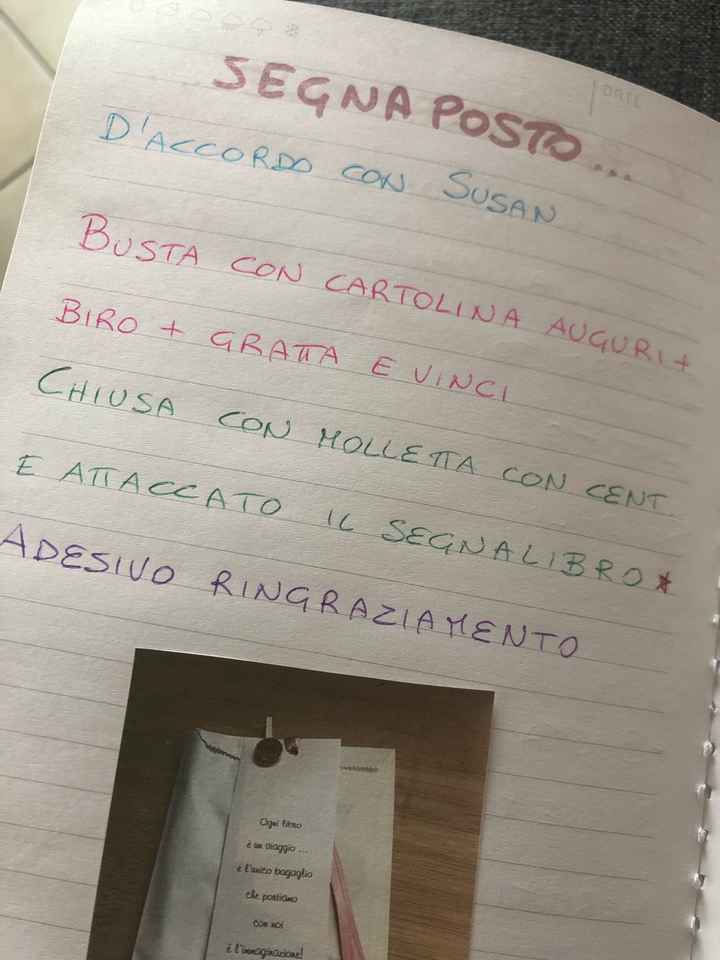 DATE
SEGNAPOSTO...
D'ACCORDO CON SUSAN
BUSTA CON CARTOLINA AUGURI +
BIRO + GRATTA E VINCI
CHIUSA CON MOLLETTA CON CENT.
E ATTACCATO IL SEGNALIBRO*
ADESIVO RINGRAZIAMENTO
Ogni libro
è un viaggio ...
e l'unico bagaglio
che portiamo
con noi
è l'immaginazione!